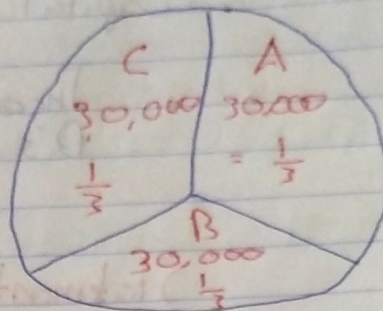 C
30,000
1/3
A
30,000
= 1/3
B
30,000
1/3